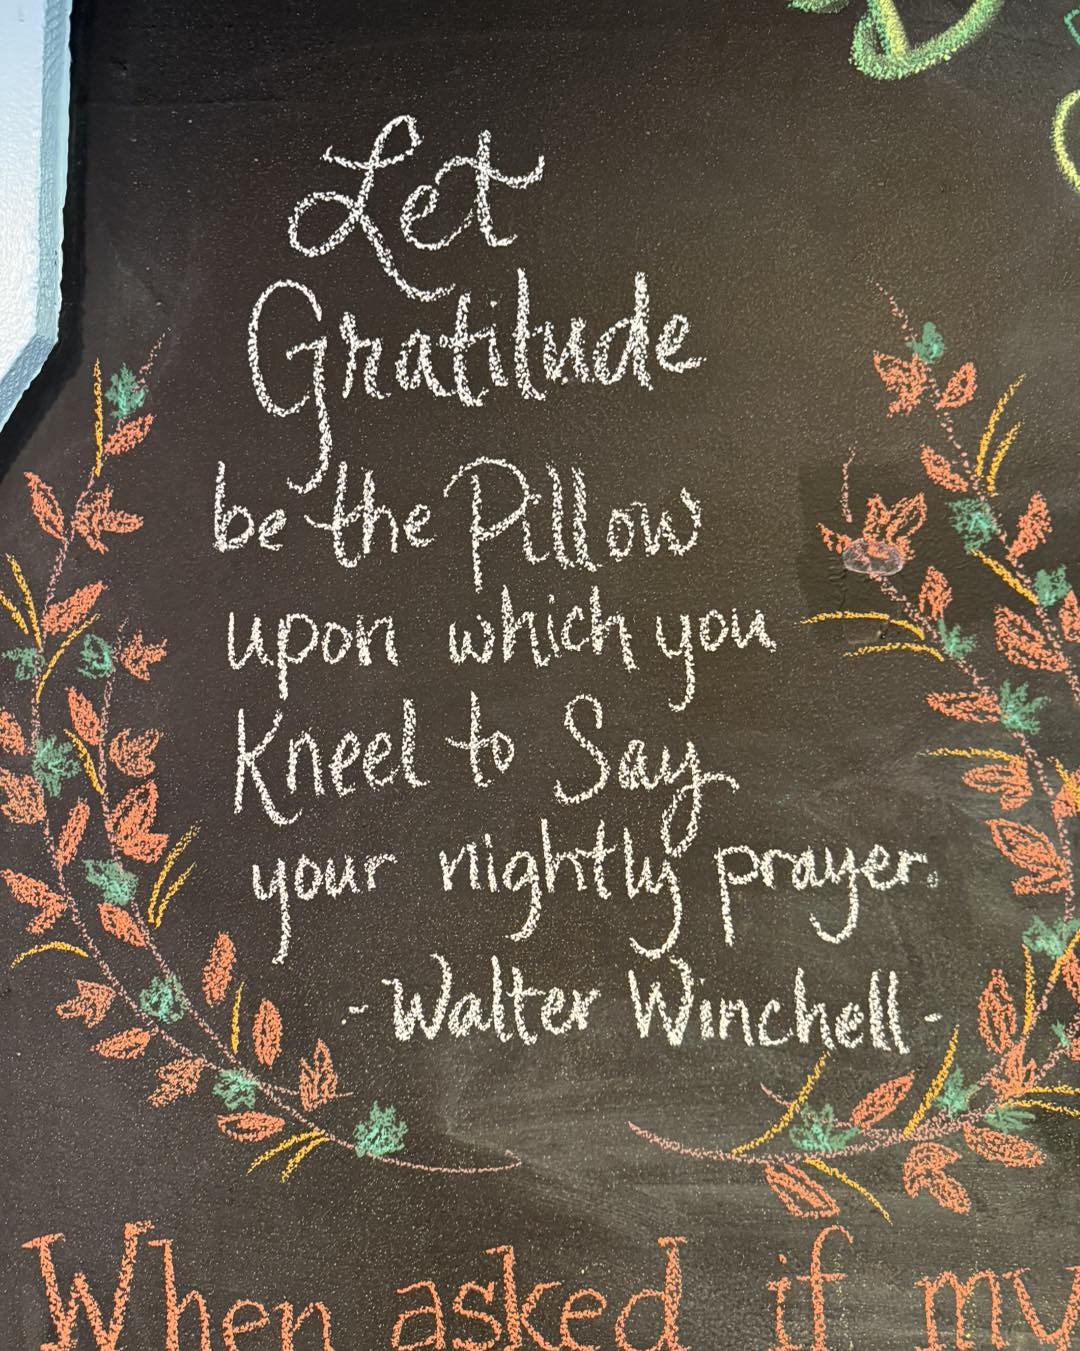 Let
Gratitude
be the Pillow
upon which you
Kneel to Say
your nightly prayer.
- Walter Winchell -
When asked if my